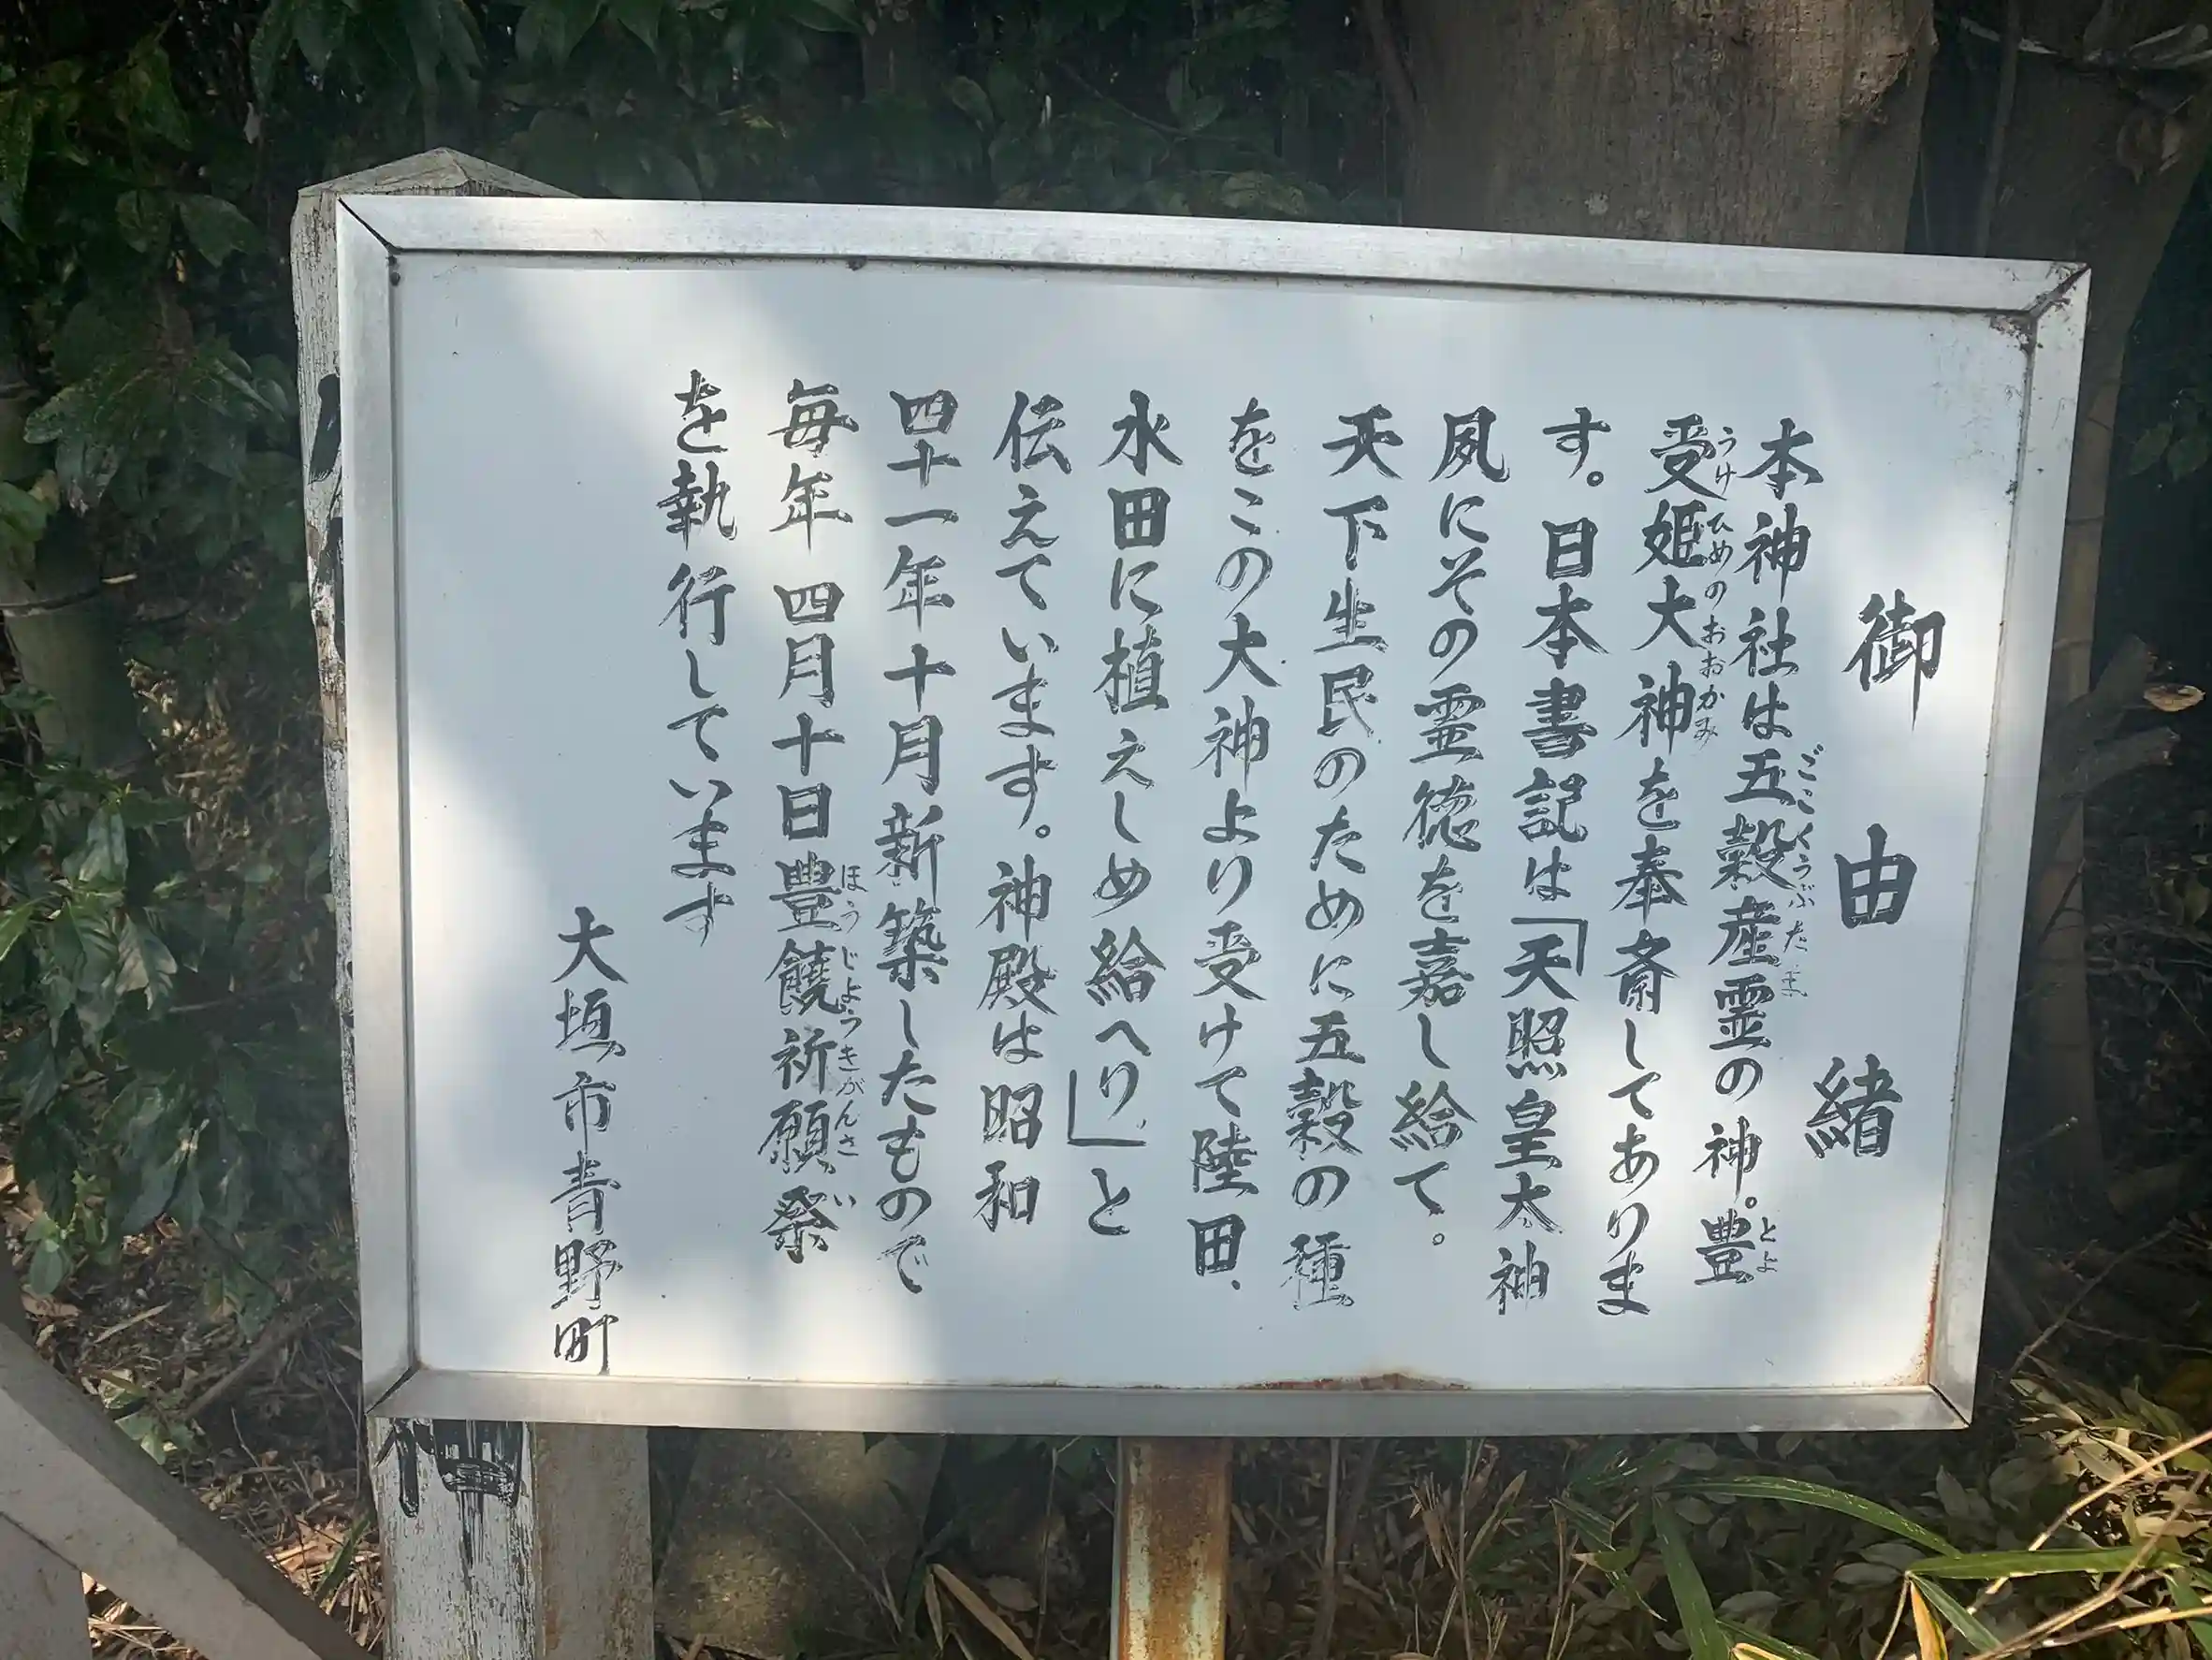 御由緒
本神社は五穀産霊の神。豊
受姫大神を奉斎してありま
す。日本書記は「天照皇大神
夙にその霊徳を嘉し給て。
天下生民のために五穀の種
をこの大神より受けて陸田、
水田に植えしめ給へり」と
伝えています。神殿は昭和
四十一年十月新築したもので
毎年四月十日豊饒祈願祭
を執行しています
大垣市青野町